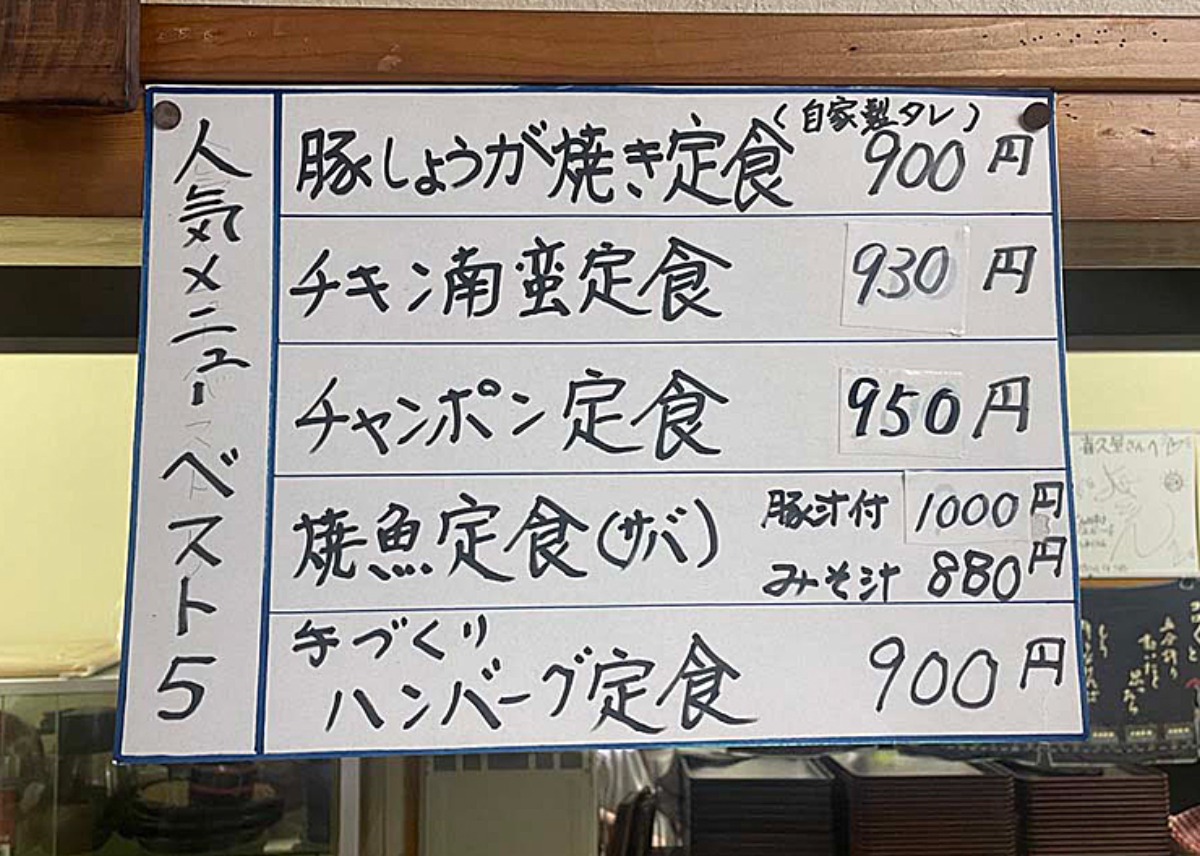 人気メニューベスト5
豚しょうが焼き定食(自家製タレ) 900円
チキン南蛮定食 930円
チャンポン定食 950円
焼魚定食(サバ) 豚汁付 1000円
みそ汁 880円
手づくり
ハンバーグ定食 900円